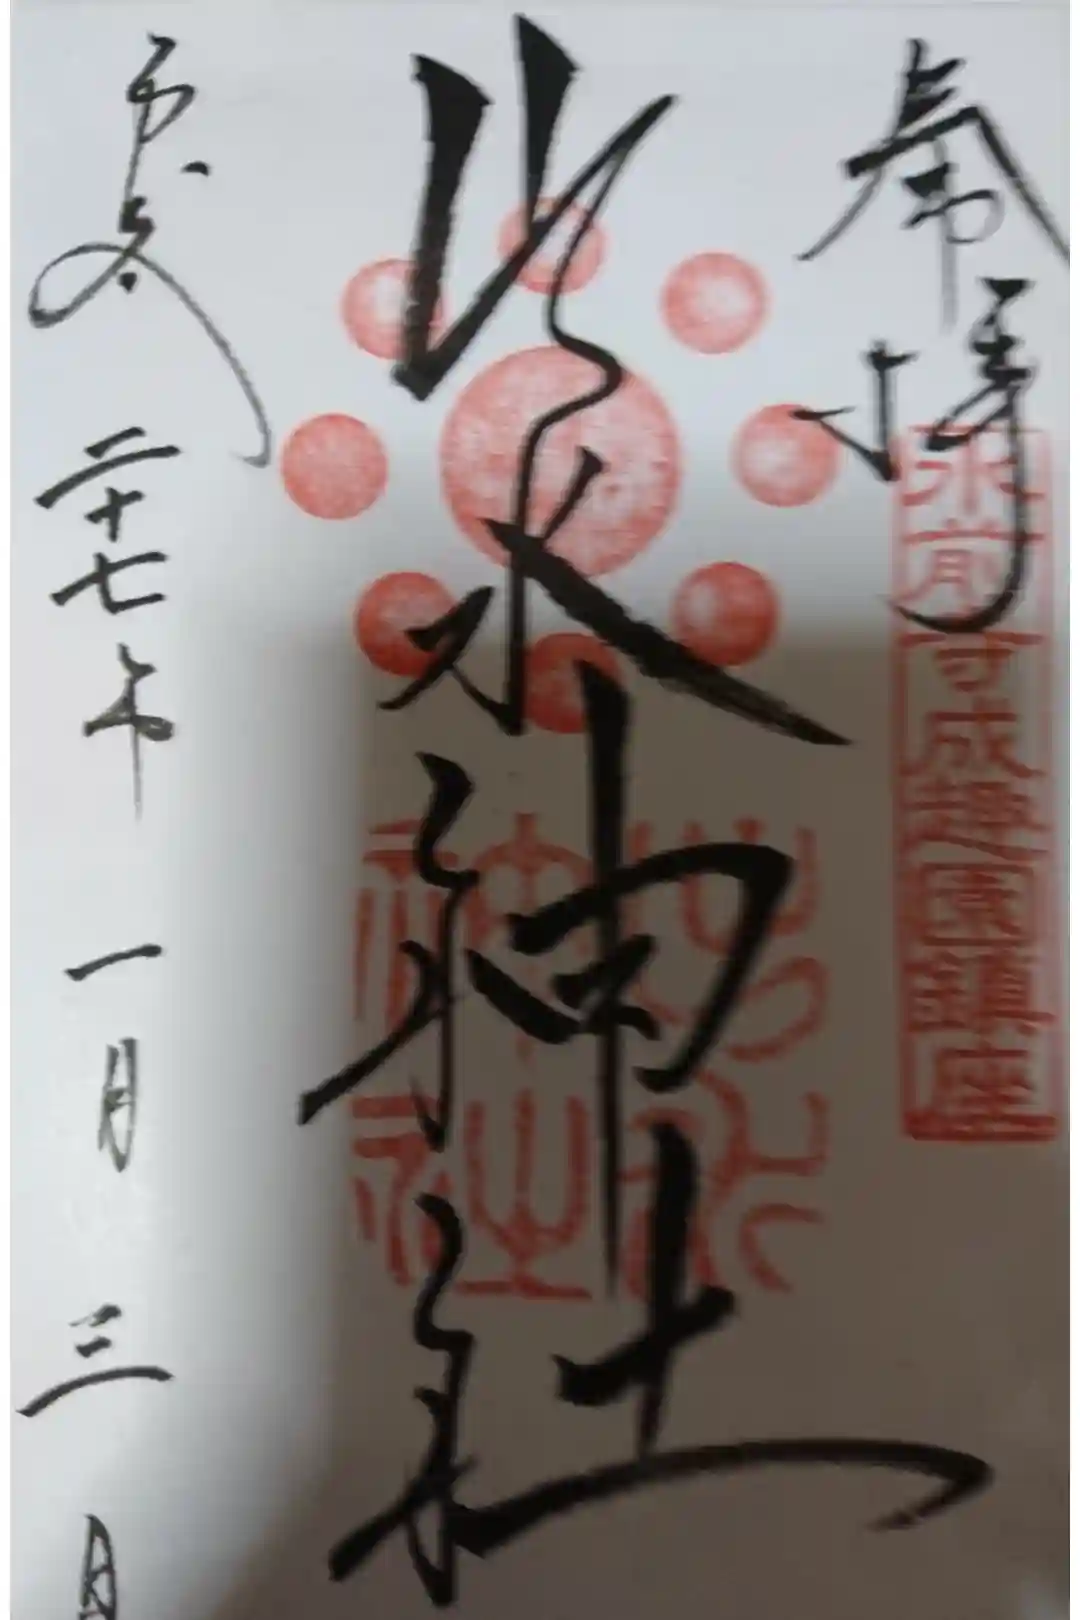 奉拝
水前寺成趣園鎮座
出水神社
出水神社
平成二十七年一月三日